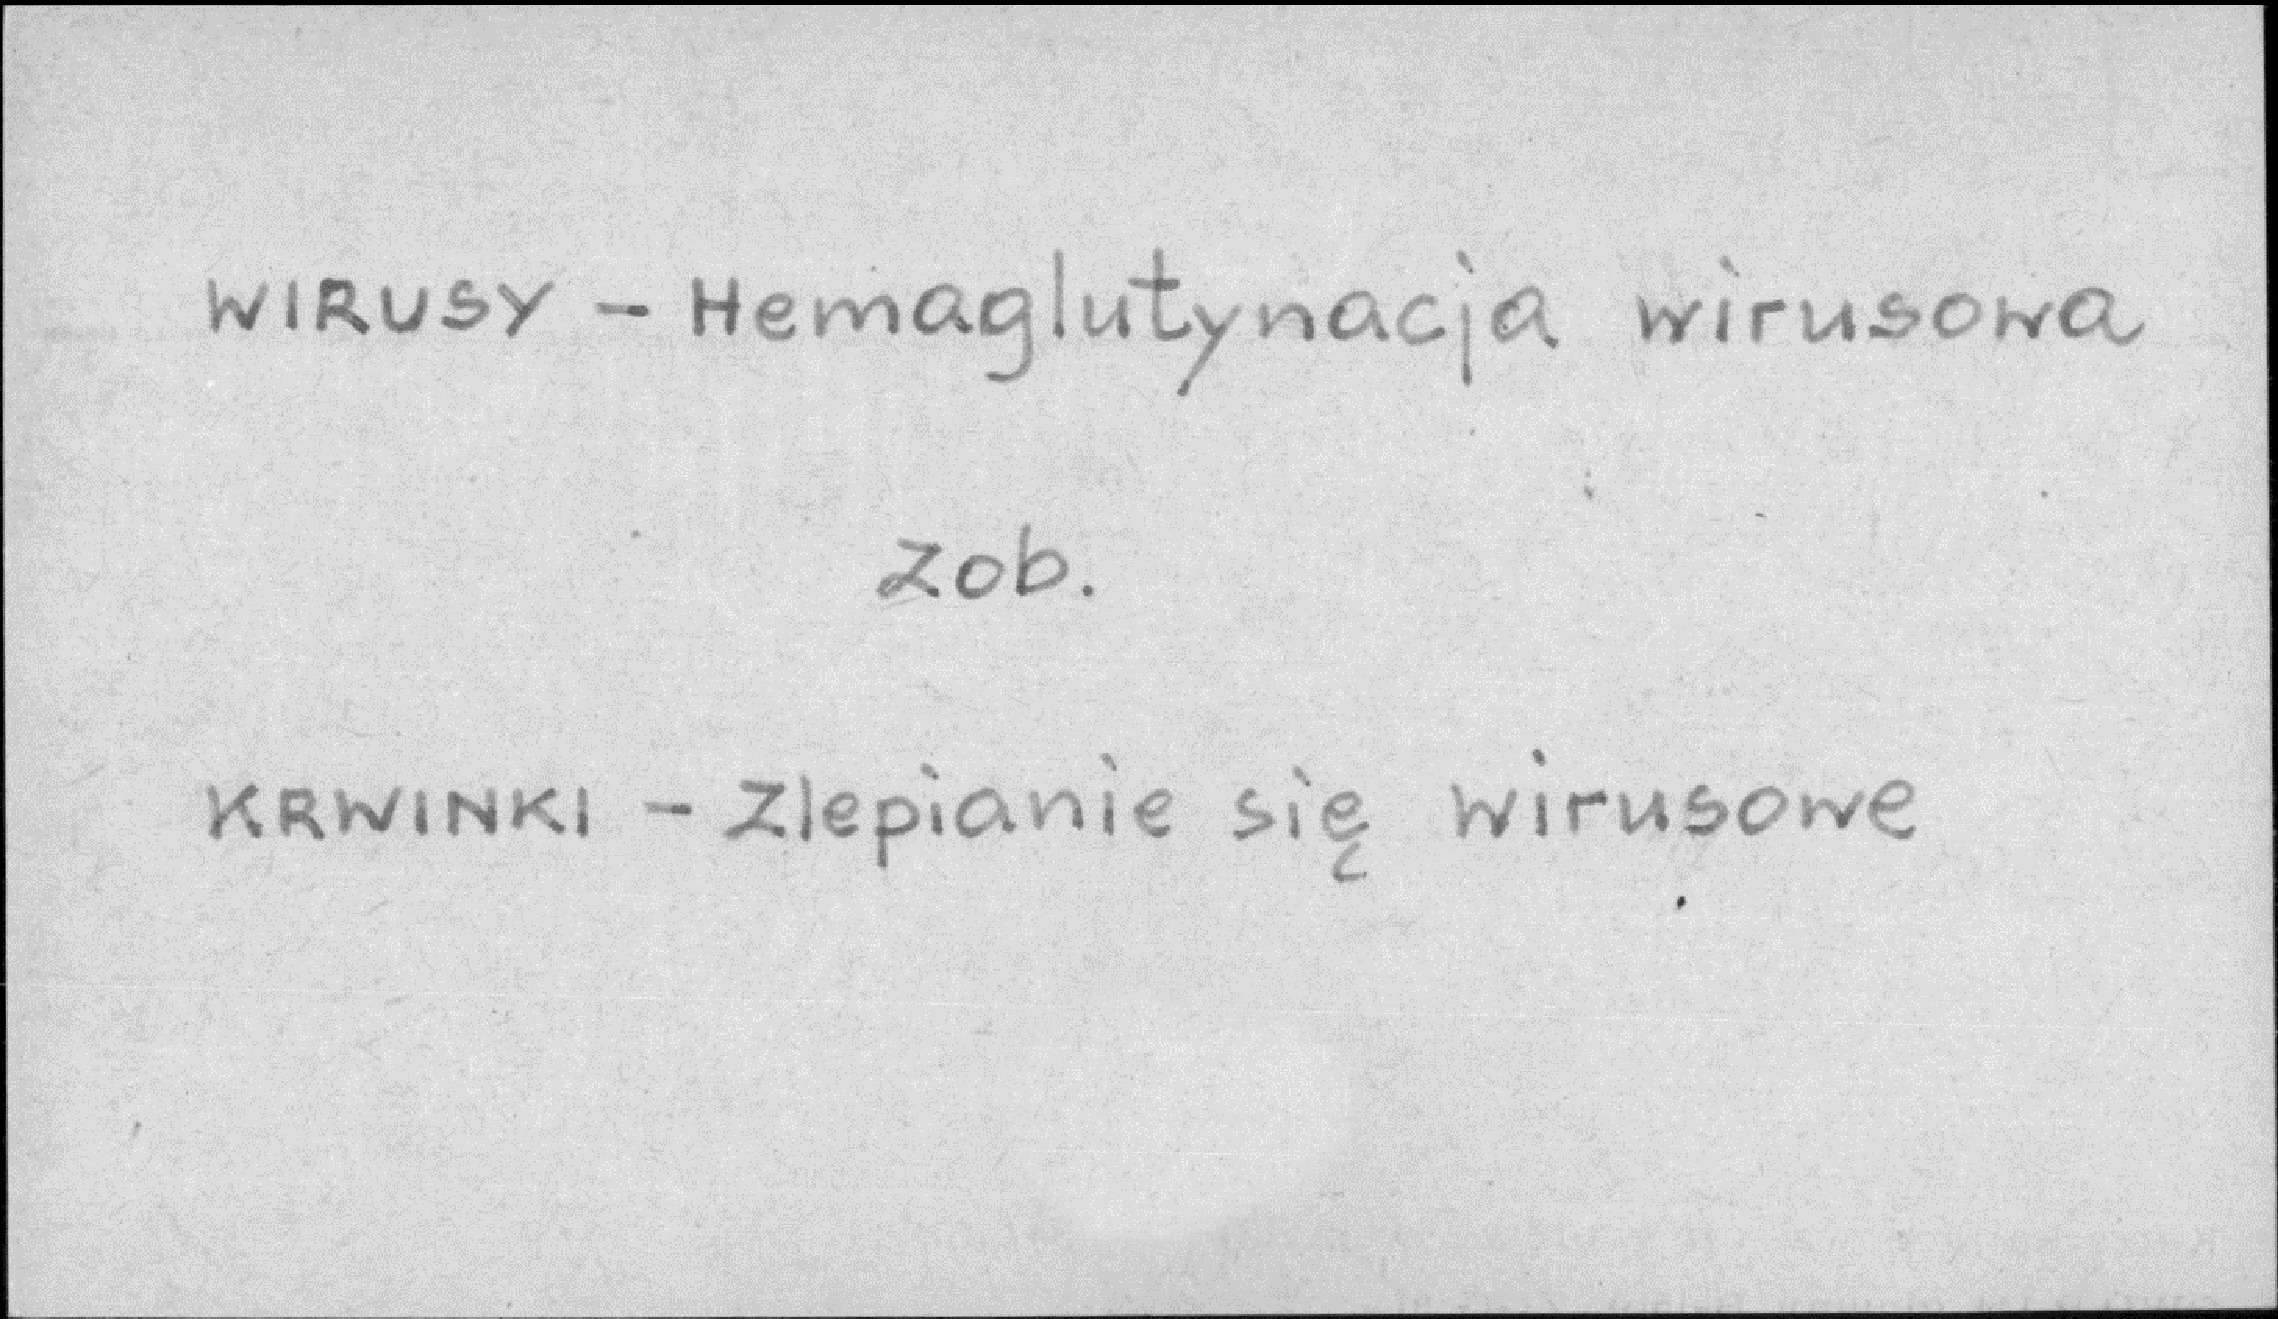 WIRUSY - Hemaglutynacja wirusowa
zob.
KRWINKI - Zlepianie się wirusowe